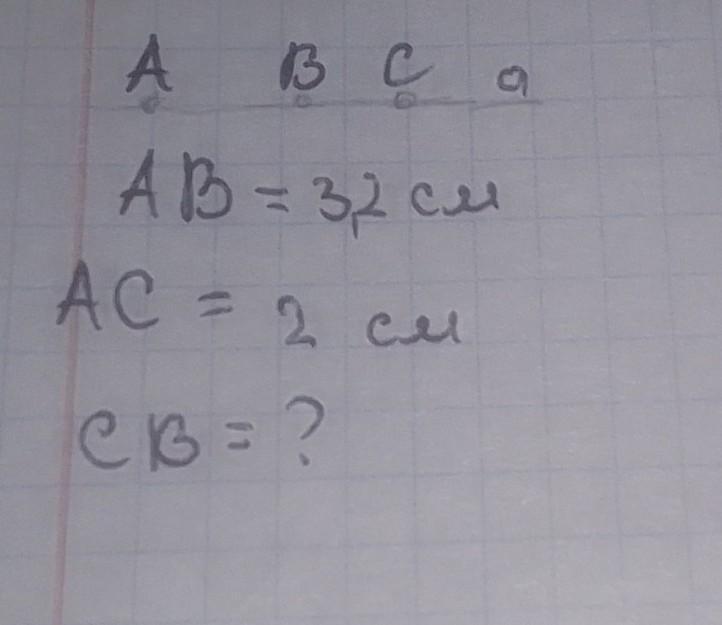 A B C a
AB = 3,2 см
AC = 2 см
CB = ?